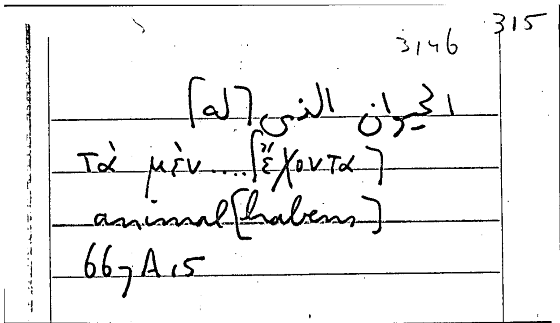 315
3146
الحيوان الذى [له]
τὰ μὲν .... [ἔχοντα]
animal [habens]
667 A 15